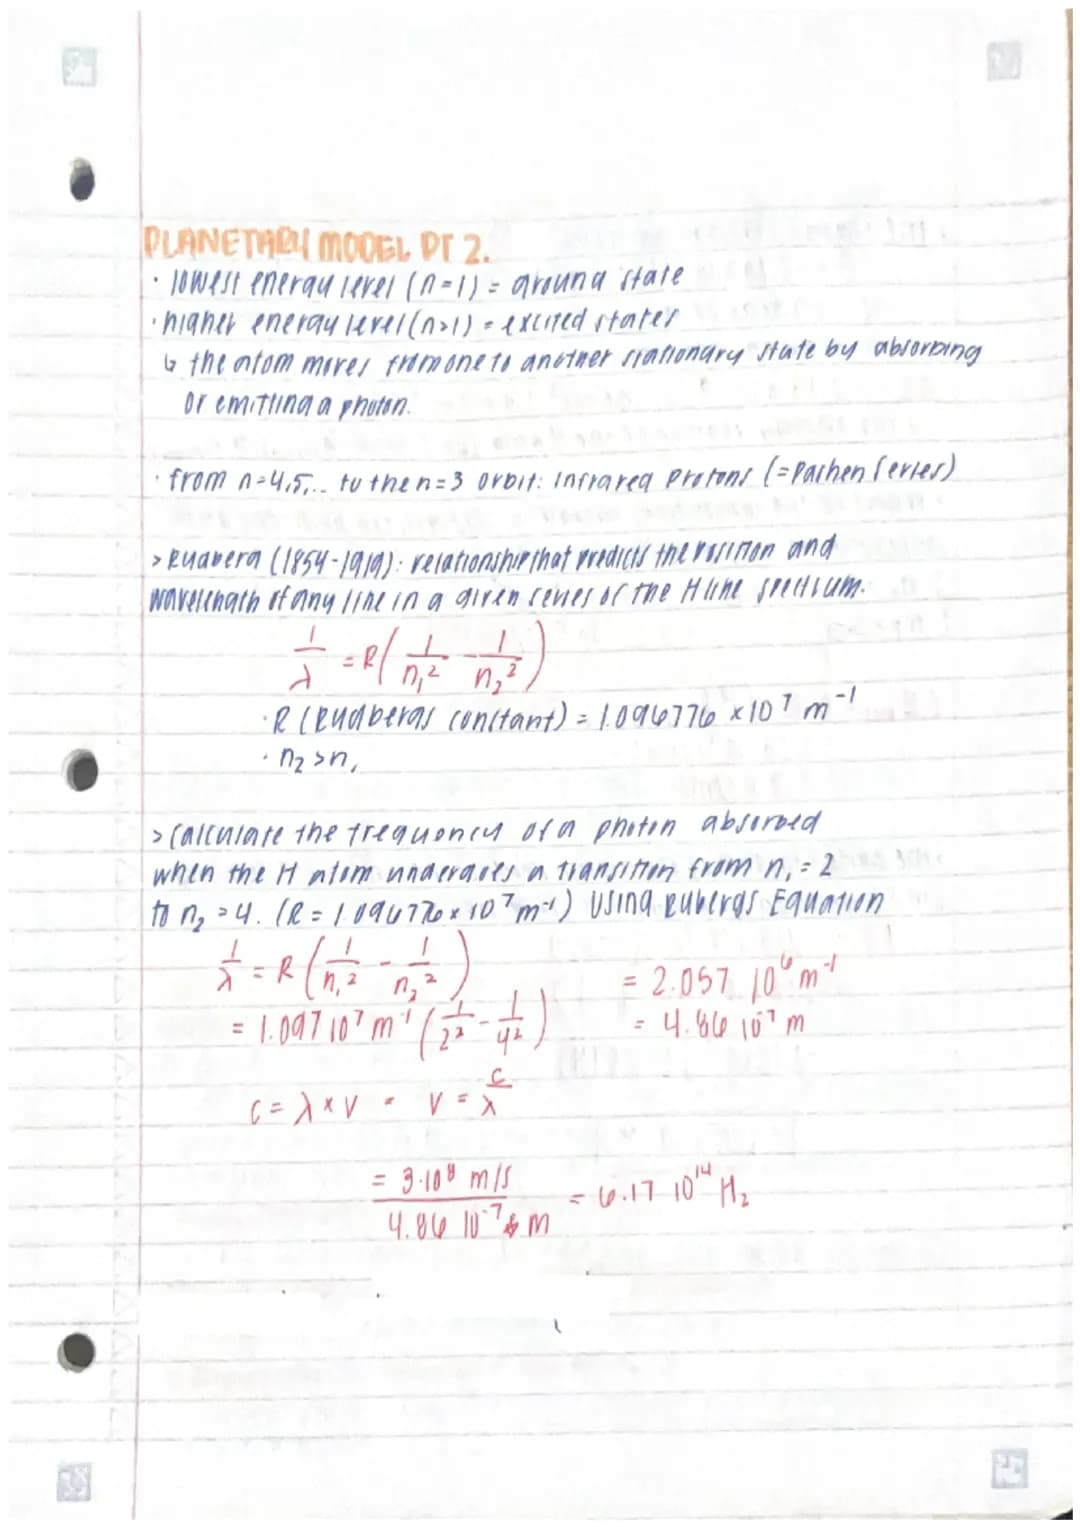 PLANETARY MODEL PT 2.
· lowest energy level (n=1) = ground state
· higher energy level (n>1) = excited states
↳ the atom moves from one to another stationary state by absorbing
or emitting a photon.
· from n=4,5,.. to the n=3 orbit: infrared Protons (=Pachen Series)
> Rydberg (1854-1919): relationship that predicts the position and
wavelength of any line in a given series of the H line spectrum.
1/λ = R(1/n₁² - 1/n₂²)
· R (Rydbergs constant) = 1.096776 × 10⁷ m⁻¹
· n₂ > n₁
> Calculate the frequency of a photon absorbed
when the H atom undergoes a transition from n₁ = 2
to n₂ = 4. (R = 1.096776 × 10⁷ m⁻¹) Using Rybergs Equation
1/λ = R(1/n₁² - 1/n₂²) = 2.057 10⁶ m⁻¹
= 1.097 10⁷ m⁻¹ (1/2² - 1/4²) = 4.86 10⁻⁷ m
c = λ × v = v = c/λ
= 3·10⁸ m/s / 4.86 10⁻⁷ m = 6.17 10¹⁴ Hz